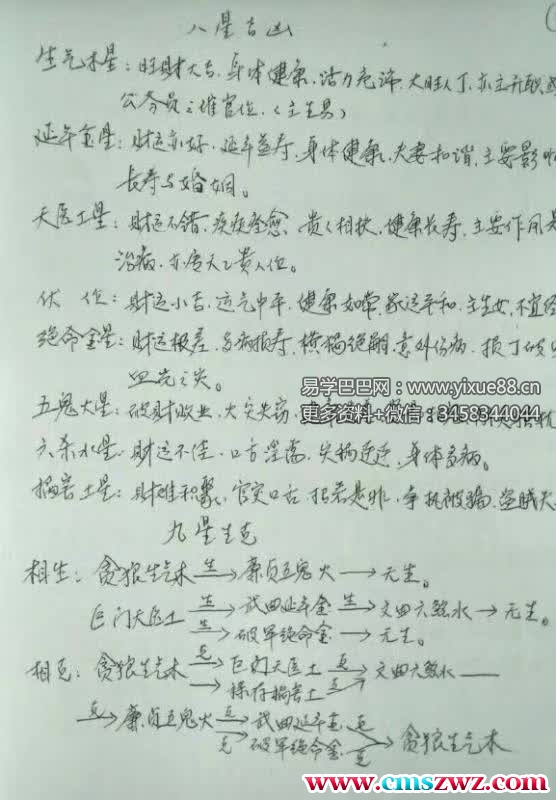 八星吉凶
生气木星：旺财大吉，身体健康，活力充沛，大旺人丁，亦主升职，
公务员之催官位。（主生男）
延年金星：财运亦好，延年益寿，身体健康，夫妻和谐，主要影响
长寿与婚姻。
天医土星：财运不错，疾疾痊愈，贵人相扶，健康长寿，主要作用是
治病，亦为天乙贵人位。
伏 位：财运小吉，运气中平，健康如常，家运平和，主生女，不宜经
绝命金星：财运极差，多病损寿，横祸绝嗣，意外伤病，损丁破
血光之灾。
五鬼火星：破财败业，火灾失窃，
六杀水星：财运不佳，口舌淫荡，失祸连连，身体多病。
祸害土星：财难积聚，官灾口舌，招惹是非，争执被骗，盗贼
九星生克
相生：贪狼生气木 生→ 廉贞五鬼火 → 无生。
巨门天医土 生→ 武曲延年金 生→ 文曲六煞水 → 无生。
生→ 破军绝命金 → 无生。
相克：贪狼生气木 克→ 巨门天医土 克→ 文曲六煞水 —
→ 禄存祸害土 克→
克→ 廉贞五鬼火 克→ 武曲延年金 克
克→ 破军绝命金 克→ 贪狼生气木
易学巴巴网：www.yixue88.cn
更多资料+微信：3458344044
www.cmszwz.com